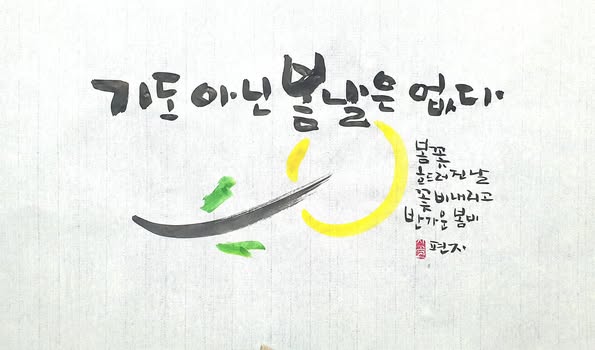 기도 아닌 봄날은 없다
봄꽃
흐드러진 날
꽃비 내리고
반가운 봄비
편지